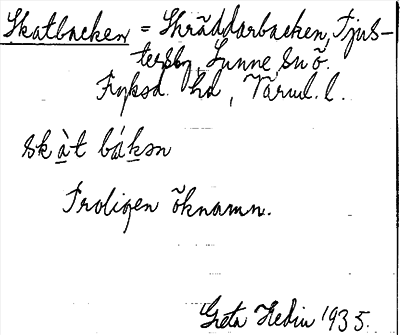 Skatbacken = Skräddarbacken, Tjus-
tersby, Sunne sn ö.
Fryksd. hd, Värml. l.
skàt bákən
Troligen öknamn.
Greta Hedin 1935.